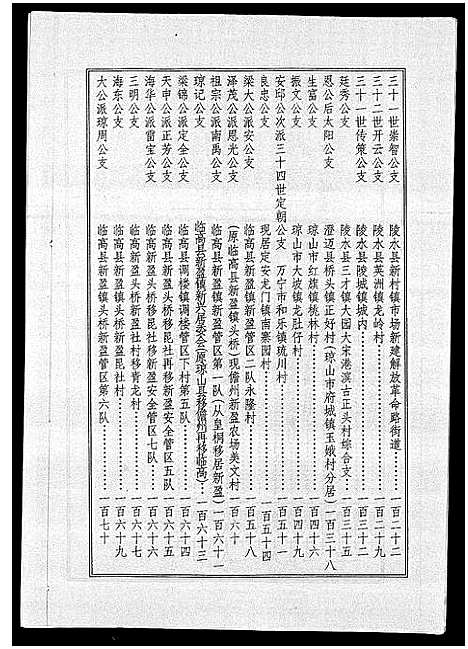 三十一世崇智公支 陵水县新村镇市场新建解放革命路街道……一百二十二
三十二世开云公支 陵水县英洲镇龙岭村……一百二十九
三十一世传策公支 陵水县陵城镇城内……一百三十三
廷秀公支 陵水县三才镇大园大宋港滨古正头村综合支……一百三十五
恩公后太阳公支 澄迈县桥头镇正好村(琼山市府城镇玉娥村分居)一百三十八
生富公支 琼山市红旗镇桃林村……一百四十六
振文公支 琼山市大坡镇龙肚仔村……一百四十九
安邱公次派三十四世定朝公支 万宁市和乐镇琉川村……一百五十一
良忠公支 现居定安龙门镇南寨园村……一百五十四
梁大公派安公支 临高县新盈镇新盈管区二队永隆村……一百五十八
泽茂公派恩光公支 (原临高县新盈镇头桥)现儋州新盈农场美文村……一百六十
祖宗公派南禹公支 临高县新盈镇新盈管区第一队(从皇桐移居新盈)一百六十一
琼记公支 临高县新盈镇新兴居委会(原琼山县移儋州再移临高)…一百六十三
梁锦公派定全公支 临高县调楼镇调楼管区下村第五队……一百六十四
天申公派正芳公支 临高县新盈头桥移昆社再移新盈安全管区五队……一百六十五
海华公派雷宝公支 临高县新盈头桥移昆社移新盈安全管区七队……一百六十六
三明公支 临高县新盈头桥新盈社村移青龙村……一百六十七
海东公支 临高县新盈镇头桥新盈昆社村……一百六十九
大公派琼周公支 临高县新盈镇头桥新盈管区第六队……一百七十